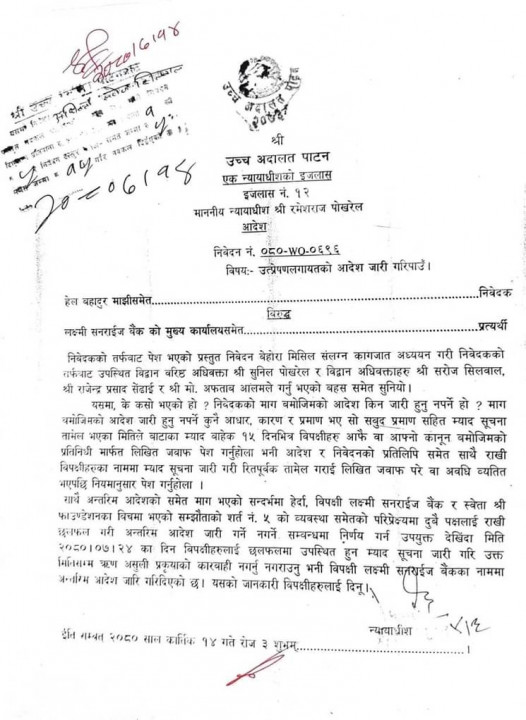 २०८०।६।१४
श्री उच्च
२०८०६।१४
उच्च अदालत पाटन
२०७३
श्री
उच्च अदालत पाटन
एक न्यायाधीशको इजलास
इजलास नं. १२
माननीय न्यायाधीश श्री रमेशराज पोखरेल
आदेश
निवेदन नं. ०८०-WO-०६९६
विषयः- उत्प्रेषणलगायतको आदेश जारी गरिपाउँ।
हेल बहादुर माझीसमेत........................................................निवेदक
बिरुद्ध
लक्ष्मी सनराईज बैंक को मुख्य कार्यालयसमेत........................................................प्रत्यर्थी
निवेदकको तर्फबाट पेश भएको प्रस्तुत निवेदन बेहोरा मिसिल संलग्न कागजात अध्ययन गरी निवेदकको
तर्फबाट उपस्थित विद्वान बरिष्ठ अधिवक्ता श्री सुनिल पोखरेल र विद्वान अधिवक्ताहरु श्री सरोज सिलवाल,
श्री राजेन्द्र प्रसाद सेंढाई र श्री मो. अफताब आलमले गर्नु भएको बहस समेत सुनियो।
यसमा, के कसो भएको हो ? निवेदकको माग बमोजिमको आदेश किन जारी हुनु नपर्ने हो ? माग
बमोजिमको आदेश जारी हुनु नपर्ने कुनै आधार, कारण र प्रमाण भए सो सबुद प्रमाण सहित म्याद सूचना
तामेल भएका मितिले बाटाका म्याद बाहेक १५ दिनभित्र विपक्षीहरु आफै वा आफ्नो कानून बमोजिमको
प्रतिनिधी मार्फत लिखित जवाफ पेश गर्नुहोला भनी आदेश र निवेदनको प्रतिलिपि समेत साथै राखी
विपक्षीहरुका नाममा म्याद सूचना जारी गरी रितपूर्वक तामेल गराई लिखित जवाफ परे वा अवधि व्यतित
भएपछि नियमानुसार पेश गर्नुहोला ।
साथै अन्तरिम आदेशको समेत माग भएको सन्दर्भमा हेर्दा, विपक्षी लक्ष्मी सनराईज बैंक र स्वेता श्री
फाउण्डेशनका बिचमा भएको सम्झौताको शर्त नं. ५ को व्यवस्था समेतको परिप्रेक्ष्यमा दुवै पक्षलाई राखी
छलफल गरी अन्तरिम आदेश जारी गर्ने नगर्ने सम्बन्धमा निर्णय गर्न उपयुक्त देखिंदा मिति
२०८०।०७।२४ का दिन विपक्षीहरुलाई छलफलमा उपस्थित हुन म्याद सूचना जारी गरि उक्त
मितिसम्म ऋण असूली प्रकृयाको कारवाही नगर्नु नगराउनु भनी विपक्षी लक्ष्मी सनराईज बैंकका नाममा
अन्तरिम आदेश जारी गरिदिएको छ। यसको जानकारी विपक्षीहरुलाई दिनू।
न्यायाधीश
ईति सम्वत् २०८० साल कार्तिक १४ गते रोज ३ शुभम्........................................................।